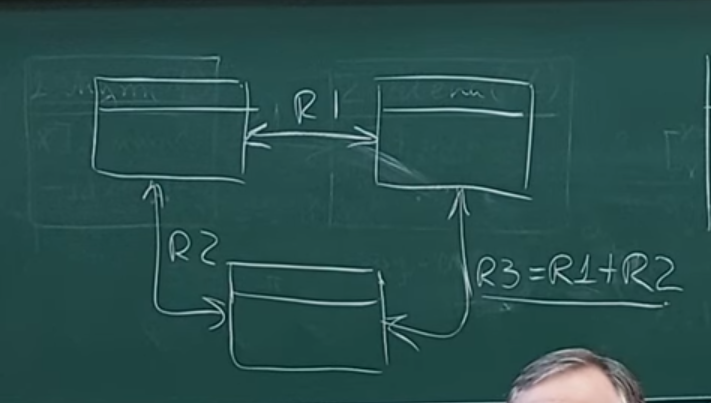 R1
R2
R3=R1+R2